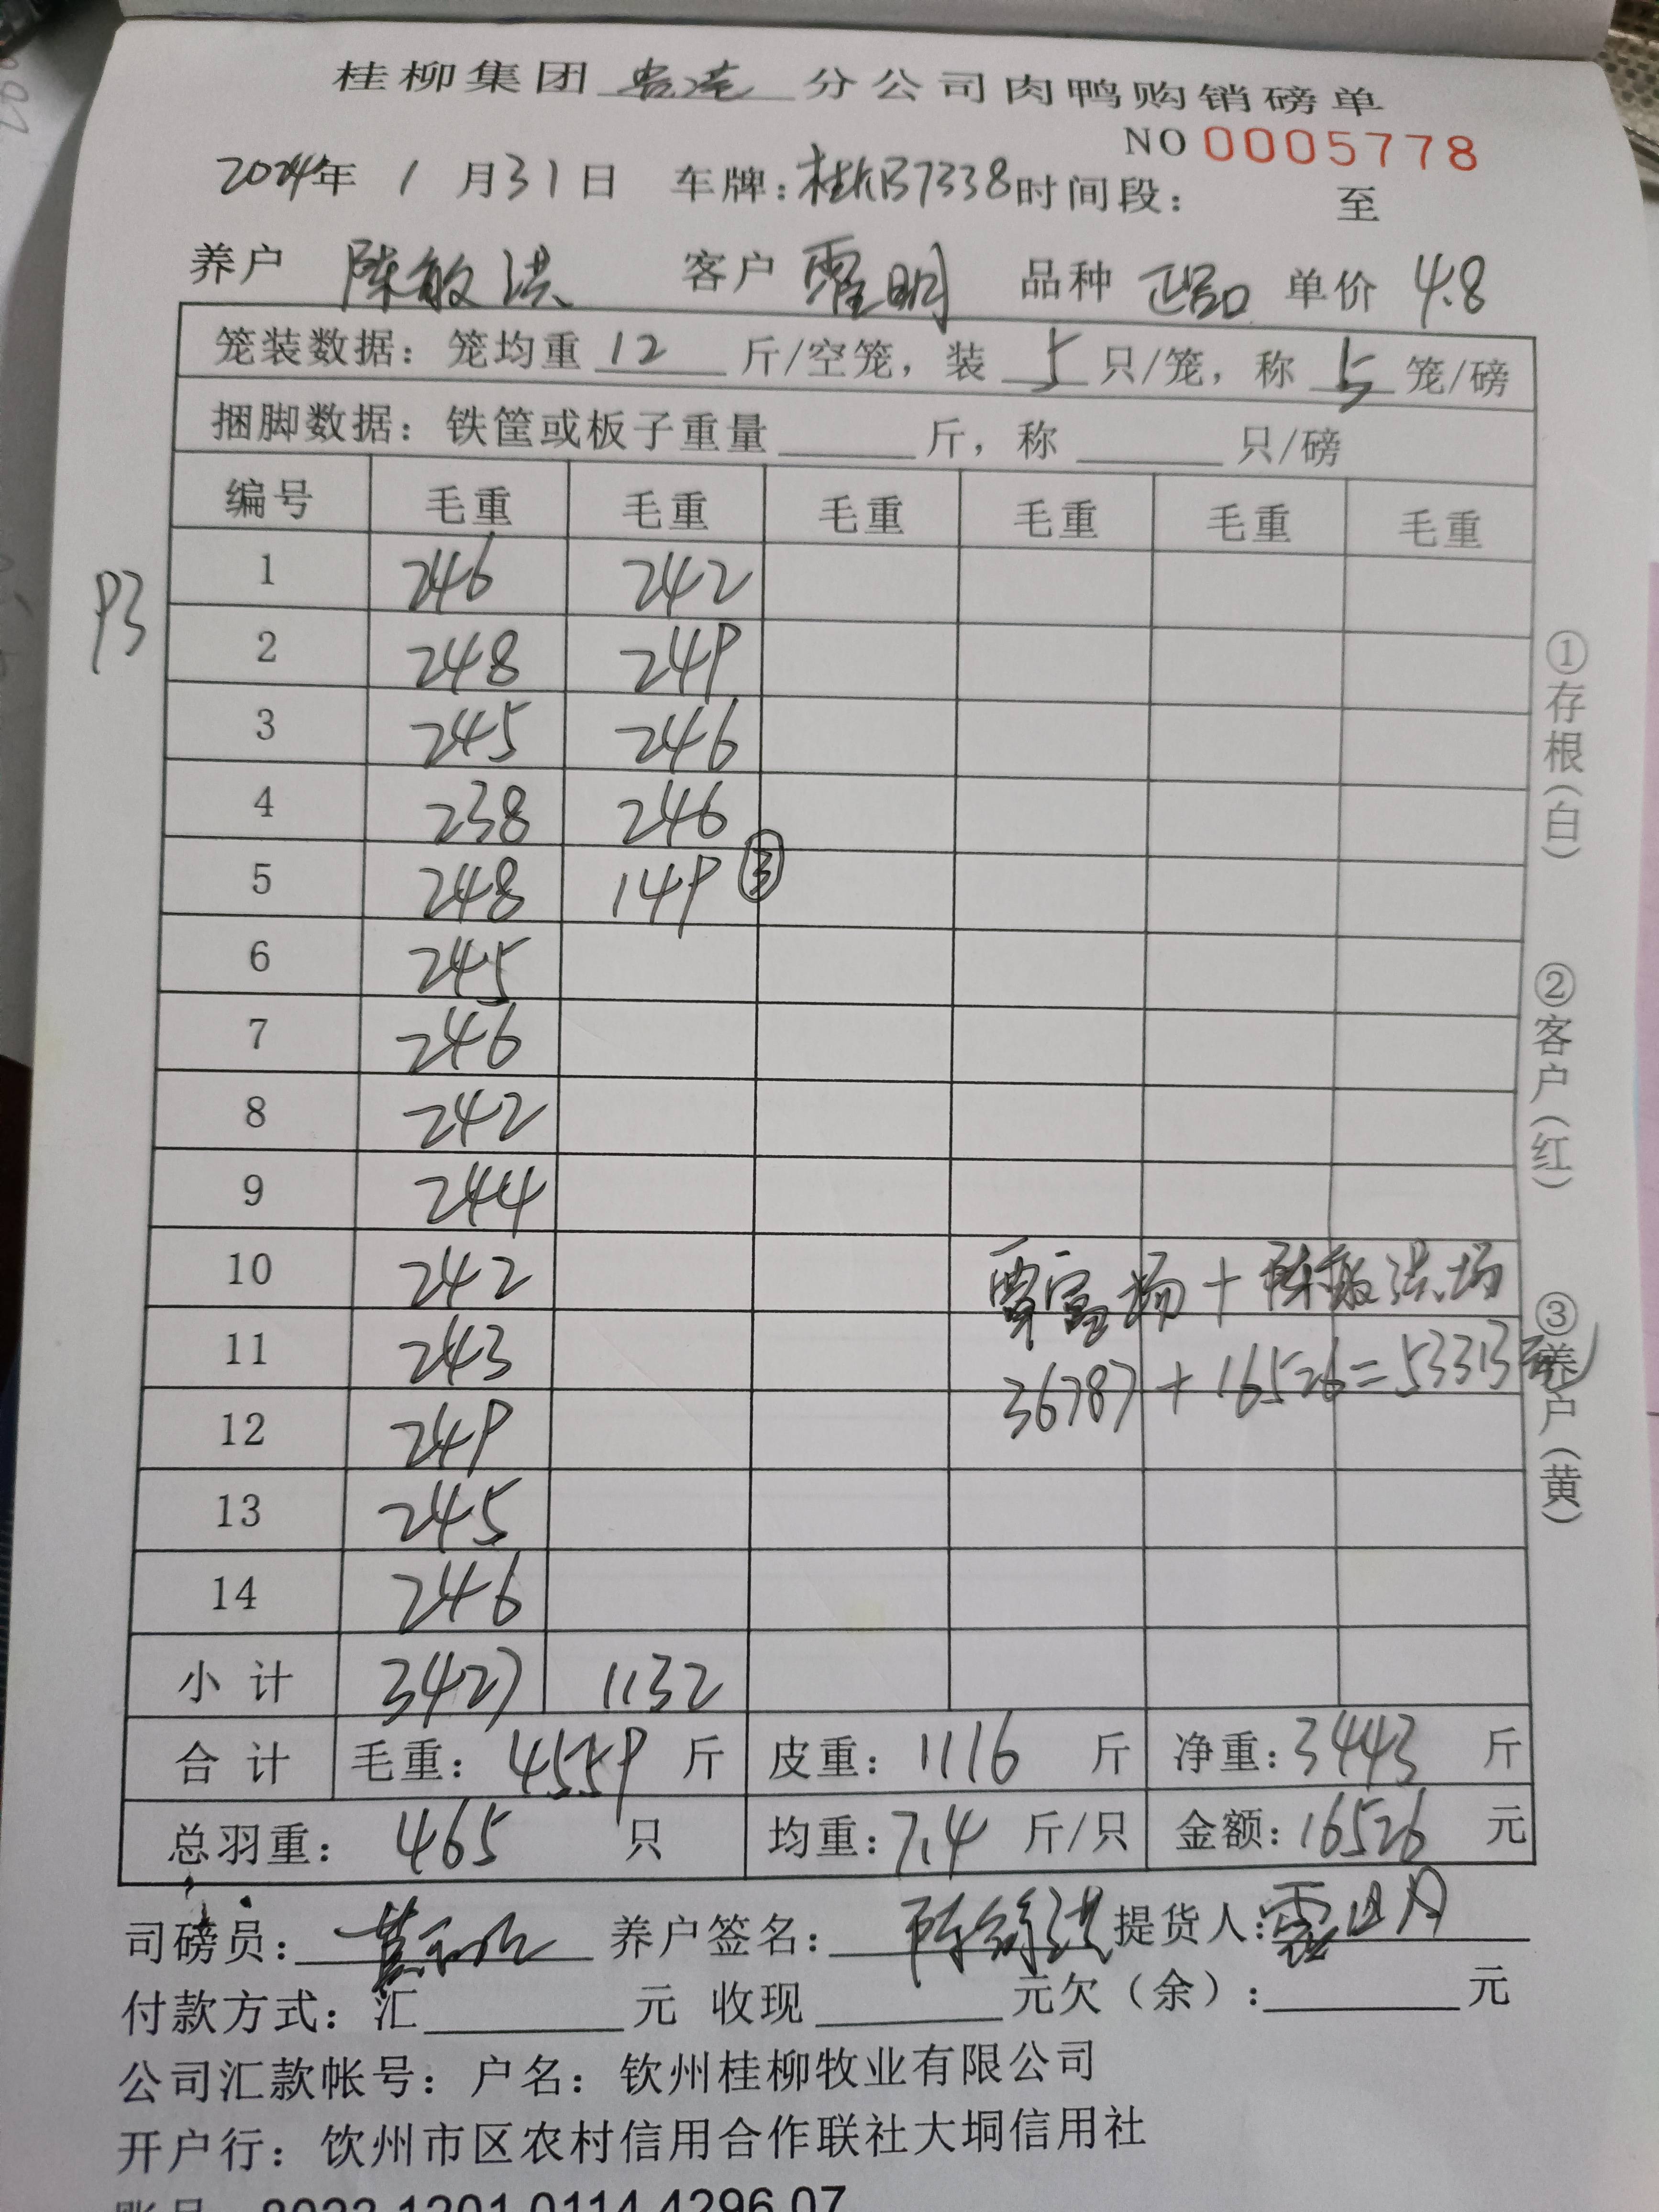 桂柳集团 贵港 分公司肉鸭购销磅单
NO 0005778
2024年 1 月 31 日 车牌：桂KB7338 时间段： 至
养户 陈敏洪 客户 覃明 品种 正品 单价 4.8
笼装数据：笼均重 12 斤/空笼，装 5 只/笼，称 5 笼/磅
捆脚数据：铁筐或板子重量 斤，称 只/磅
编号 毛重 毛重 毛重 毛重 毛重 毛重
P3
1 246 242
2 248 249
3 245 246
4 238 246
5 248 149 ③
6 245
7 246
8 242
9 244
10 242 覃富场+陈敏洪场
11 243 36787+16526=53313元
12 249
13 245
14 246
小计 3427 1132
合计 毛重：4559 斤 皮重：1116 斤 净重：3443 斤
总羽重：465 只 均重：7.4 斤/只 金额：16526 元
①存根（白）
②客户（红）
③养户（黄）
司磅员： 养户签名：陈敏洪 提货人：覃明
付款方式：汇 元 收现 元欠（余）： 元
公司汇款帐号：户名：钦州桂柳牧业有限公司
开户行：钦州市区农村信用合作联社大垌信用社
账号 8022 1201 0114 4296 07